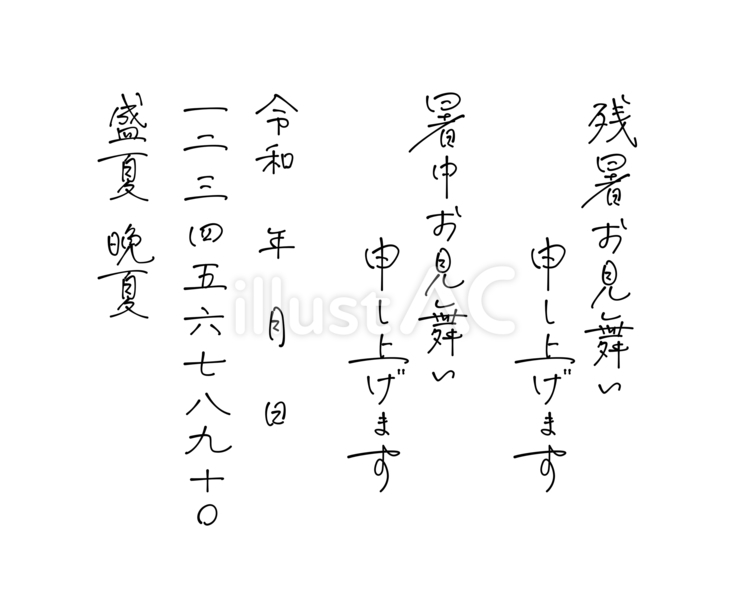 残暑お見舞い
申し上げます
暑中お見舞い
申し上げます
令和 年 月 日
一二三四五六七八九十〇
盛夏 晩夏
illustAC